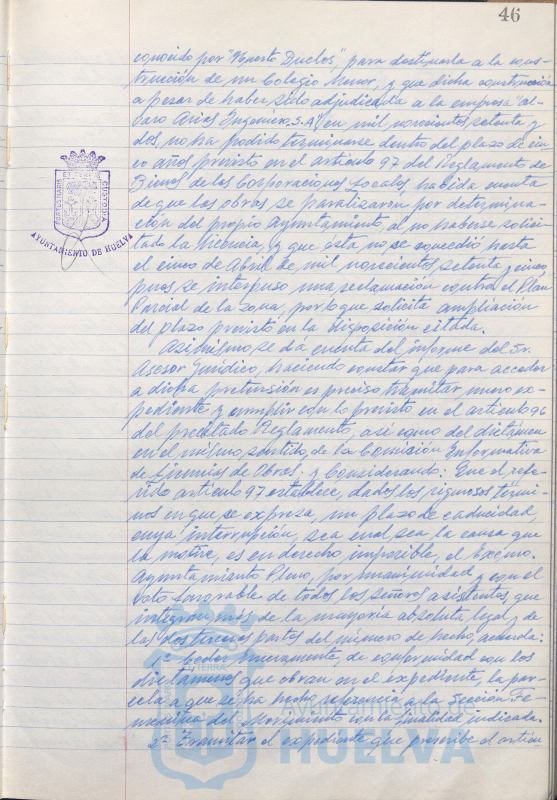 46
conocido por "Huerto Duclos", para destinarla a la cons-
trucción de un Colegio Menor, y que dicha construcción
a pesar de haber sido adjudicada a la empresa "Al-
varo Arias Ingeniero, S.A." en mil novecientos setenta y
dos, no ha podido terminarse dentro del plazo de cin-
co años previsto en el artículo 97 del Reglamento de
Bienes de las Corporaciones Locales habida cuenta
de que las obras se paralizaron por determina-
ción del propio Ayuntamiento, al no haberse solici-
tado la licencia, y que ésta no se concedió hasta
el cinco de Abril de mil novecientos setenta y cinco,
pues se interpuso una reclamación contra el Plan
Parcial de la zona, por lo que solicita ampliación
del plazo previsto en la disposición citada.
Asimismo, se dá cuenta del informe del Sr.
Asesor Jurídico, haciendo constar que para acceder
a dicha pretensión es preciso tramitar nuevo ex-
pediente y cumplir con lo previsto en el artículo 96
del precitado Reglamento, así como del dictámen
en el mismo sentido, de la Comisión Informativa
de Licencias de Obras. y Considerando: Que el refe-
rido artículo 97 establece, dados los rigurosos térmi-
nos en que se expresa, un plazo de caducidad,
cuya interrupción, sea cual sea la causa que
la motive, es en derecho imposible, el Excmo.
Ayuntamiento Pleno, por unanimidad y con el
voto favorable de todos los señores asistentes, que
integran más de la mayoría absoluta legal y de
las dos terceras partes del número de hecho, acuerda:
1º Ceder nuevamente, de conformidad con los
dictámenes que obran en el expediente, la par-
cela a que se ha hecho referencia a la Sección Fe-
menina del Movimiento con la finalidad indicada.
2º Tramitar el expediente que prescribe el artícu
AYUNTAMIENTO DE HUELVA
PORTUS MARIS ET TERRAE CUSTODIA
Ayuntamiento de
HUELVA